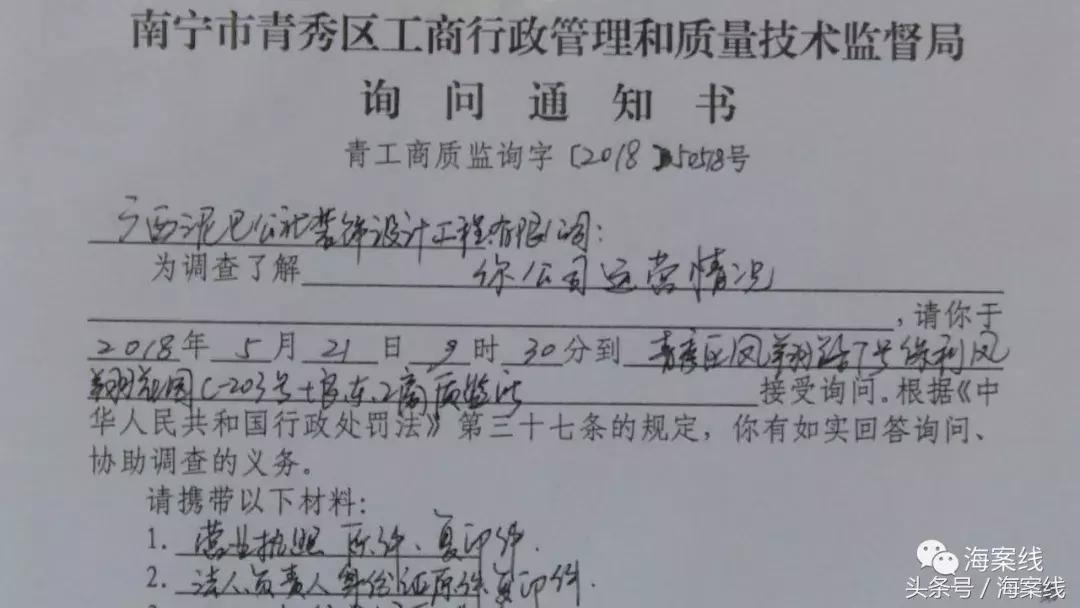 南宁市青秀区工商行政管理和质量技术监督局
询问通知书
青工商质监询字〔2018〕50518号
广西泥巴公社装饰设计工程有限公司:
为调查了解 你公司运营情况
,请你于
2018年5月21日9时30分到青秀区凤翔路7号保利凤
翔花园C-203号 东 工商质监所接受询问。根据《中
华人民共和国行政处罚法》第三十七条的规定,你有如实回答询问、
协助调查的义务。
请携带以下材料:
1. 营业执照原件、复印件.
2. 法人、负责人身份证原件、复印件.
海案线
头条号 / 海案线